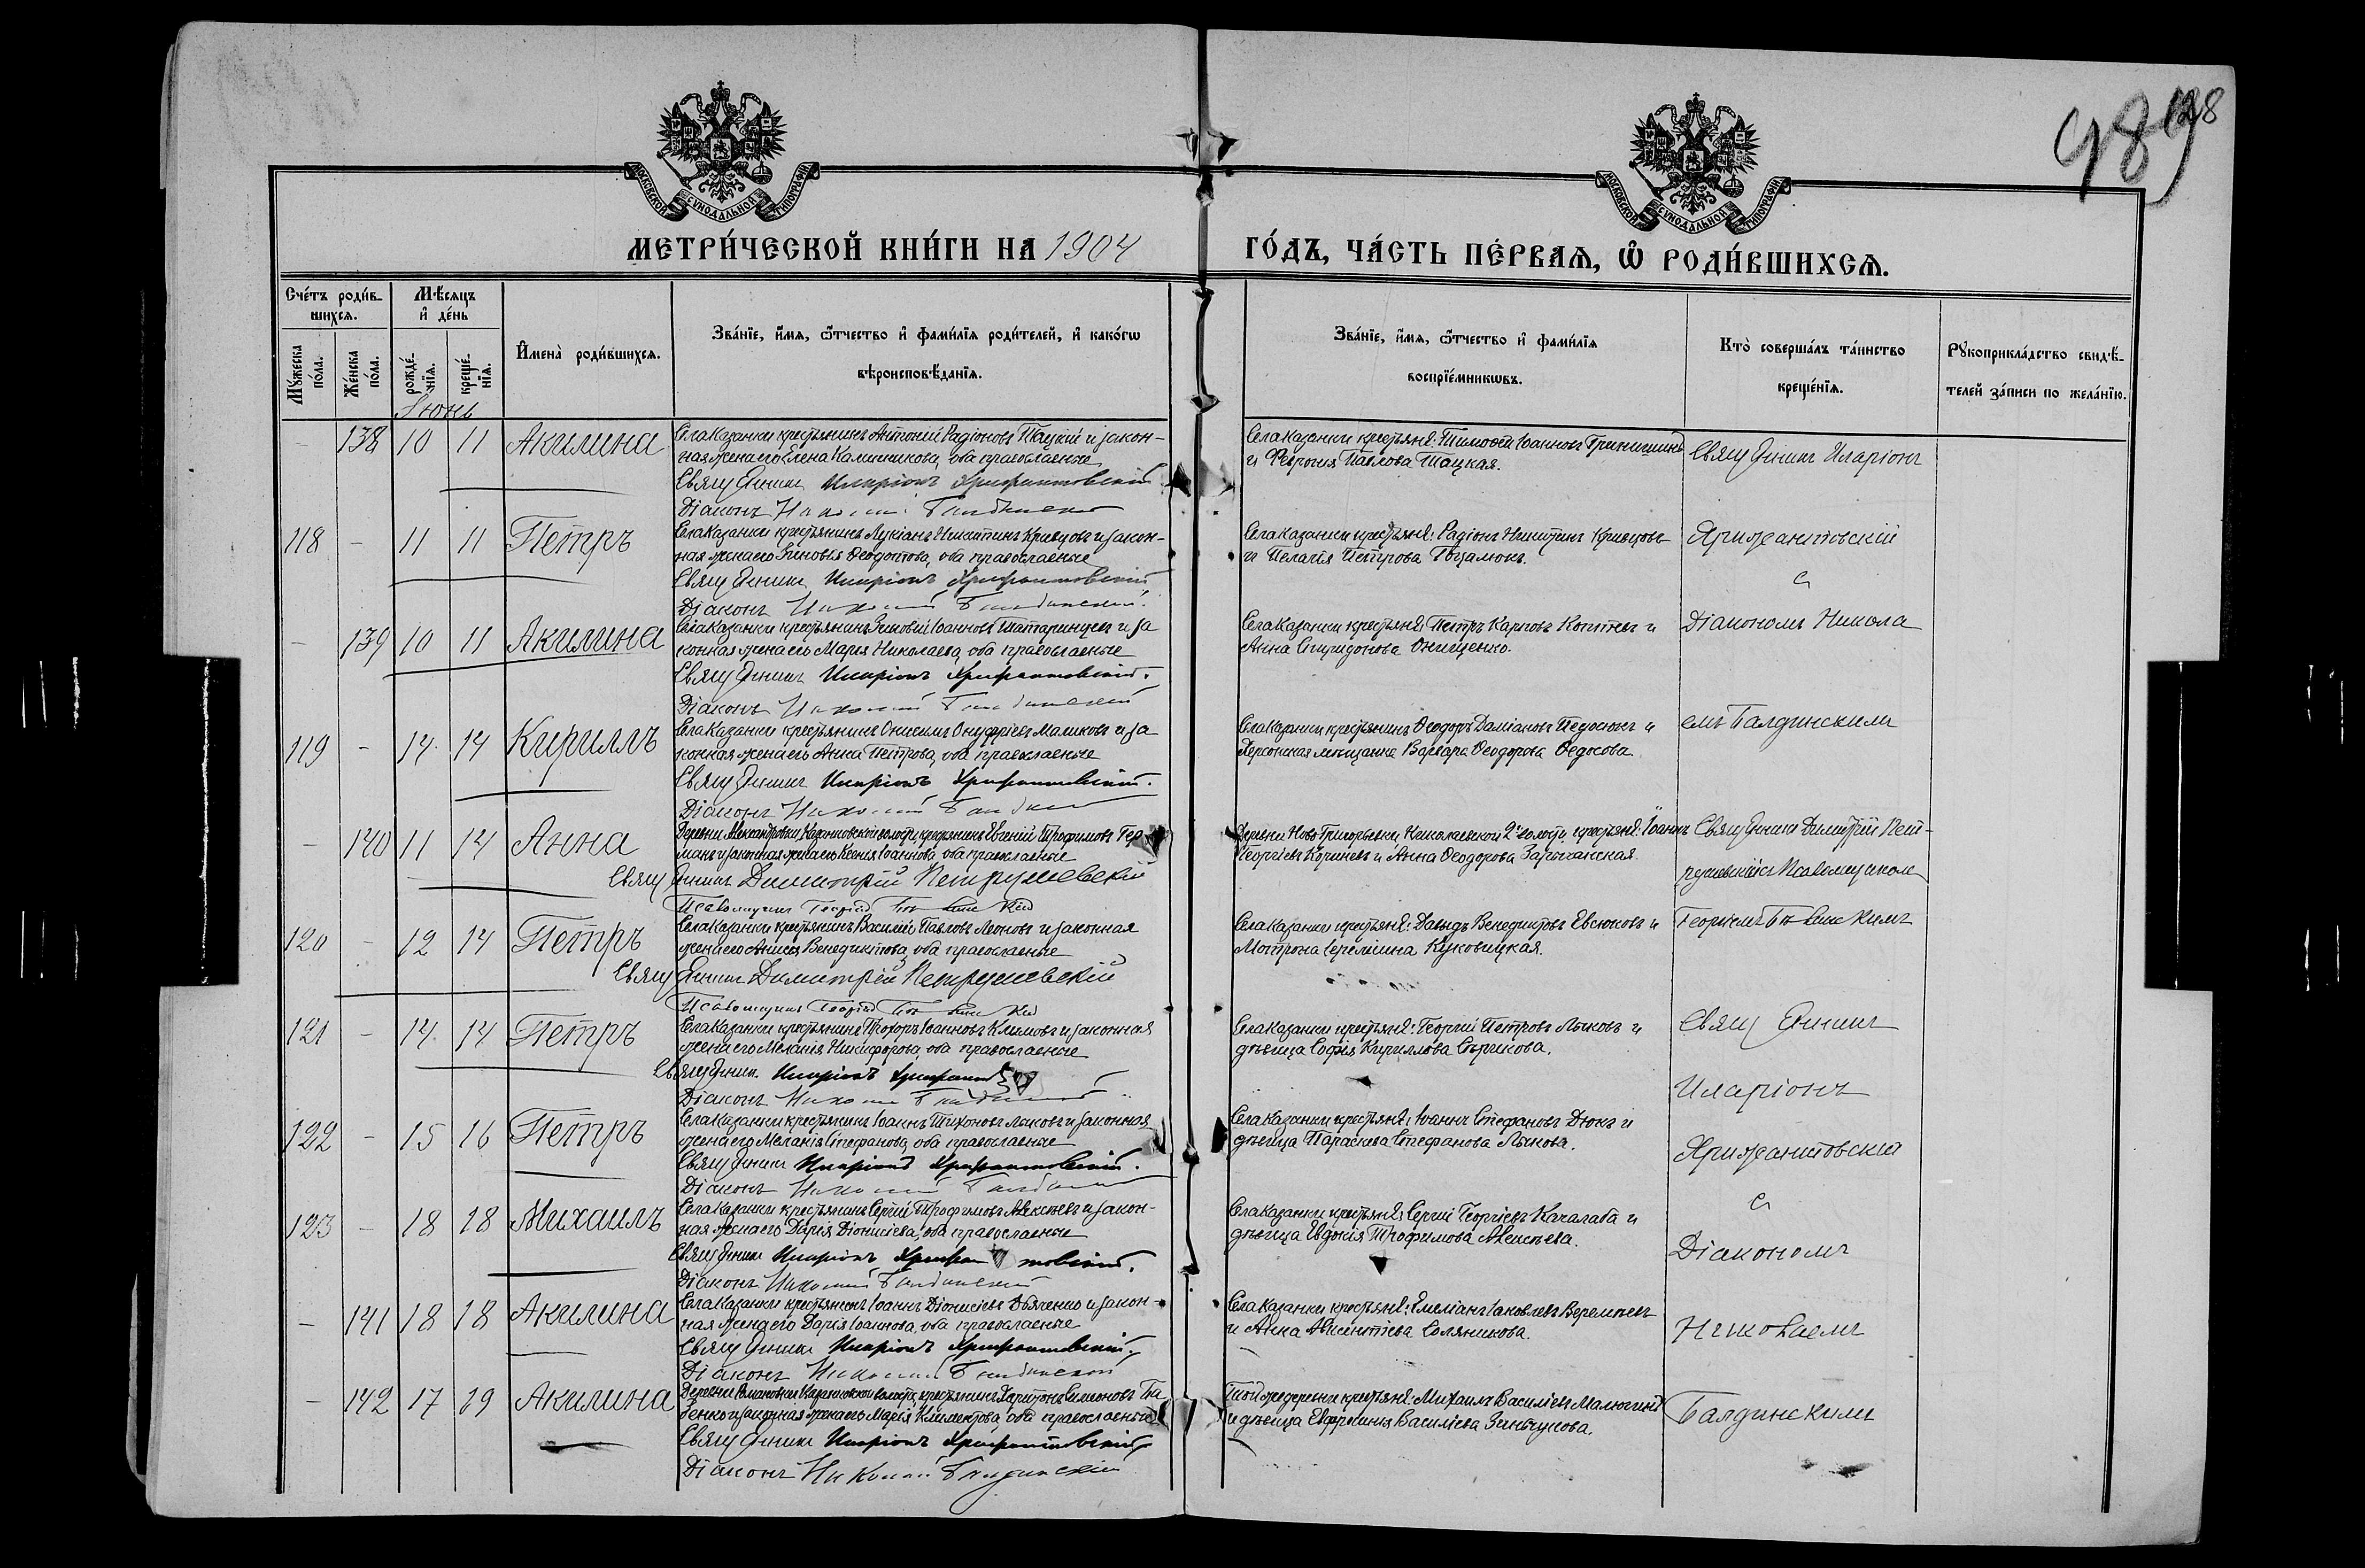 128
989
МОСКОВСКОЙ СѴНОДАЛЬНОЙ ТИПОГРАФІИ
МОСКОВСКОЙ СѴНОДАЛЬНОЙ ТИПОГРАФІИ
МЕТРИ́ЧЕСКОЙ КНИ́ГИ НА 1904 ГО́ДЪ, ЧА́СТЬ ПЕ́РВАѦ, Ѡ҆ РОДИ́ВШИХСѦ.
Сче́тъ роди́в-
шихсѧ.
Мѣ́сѧцъ
и҆ де́нь
Му́жеска по́ла.
Же́нска по́ла.
рожде́-нїѧ.
креще́-нїѧ.
И҆мена̀ роди́вшихсѧ.
Зва́нїе, и҆́мѧ, ѻ҆́тчество и҆ фами́лїѧ роди́телей, и҆ како́гѡ
вѣроисповѣ́данїѧ.
Зва́нїе, и҆́мѧ, ѻ҆́тчество и҆ фами́лїѧ
воспрїе́мникѡвъ.
Кто̀ соверша́лъ та́инство
креще́нїѧ.
Рꙋкоприкла́дство свидѣ́-
телей за́писи по жела́нїю.
Іюнь
138 10 11 Акилина
Села Казанки крестьянинъ Антоній Радіоновъ Тацкій и закон-
ная жена его Елена Калинникова, оба православные
Священникъ Иларіонъ Хрисанфовскій
Діаконъ
Села Казанки крестьяне: Тимофей Іоанновъ
и Феврония Павлова Тацкая.
Священникъ Иларіонъ
118 - 11 11 Петръ
Села Казанки крестьянинъ Лукіанъ Никитинъ Кривцовъ и закон-
ная жена его Зиновія Феодотова, оба православные
Священникъ Иларіонъ
Діаконъ Николай Балдинскій
Села Казанки крестьяне: Радіонъ Никитинъ Кривцовъ
и Пелагія Петрова
с
- 139 10 11 Акилина
Села Казанки крестьянинъ Зиновій Іоанновъ Татаринцевъ и за
конная жена его Марія Николаева, оба православные
Священникъ Иларіонъ
Діаконъ Николай Балдинскій
Села Казанки крестьяне: Петръ Карповъ и
Анна Спиридонова Онищенко.
Діакономъ Никола
119 - 14 14 Кириллъ
Села Казанки крестьянинъ Онисимъ Онуфріевъ Маликовъ и за
конная жена его Анна Петрова, оба православные
Священникъ Иларіонъ
Діаконъ Николай
Села Казанки крестьянинъ Феодоръ Даміановъ и
Херсонская мещанка Варвара Феодорова Федосова.
емъ Балдинскимъ
- 140 11 14 Анна
Деревни Александровки, Казанковской волости, крестьянинъ Евгеній Трофимовъ Гер
манъ и законная жена его Ксенія Іоаннова, оба православные
Священникъ Димитрій Петрушевскій
Псаломщикъ Георгій
Деревни Ново-Григорьевки, Николаевской 2й волости, крестьяне: Іоаннъ
Георгіевъ и Анна Феодорова
Священникъ Димитрій Пет-
рушевскій съ Псаломщикомъ
120 - 12 14 Петръ
Села Казанки крестьянинъ Василій Павловъ Леоновъ и законная
жена его Анисія Венедиктова, оба православные
Священникъ Димитрій Петрушевскій
Псаломщикъ Георгій
Села Казанки крестьяне: Давидъ Венедиктовъ Евсюковъ и
Мотрона
Георгіемъ
121 - 14 14 Петръ
Села Казанки крестьянинъ Іоанновъ Климовъ и законная
жена его Меланія Никифорова, оба православные
Священник Иларіонъ
Діаконъ
Села Казанки крестьяне: Георгій Петровъ Лыковъ и
девица Софія Кириллова
Священникъ
Иларіонъ
122 - 15 16 Петръ
Села Казанки крестьянинъ Іоаннъ Тихоновъ Лыковъ и законная
жена его Меланія Стефанова, оба православные
Священникъ Иларіонъ
Діаконъ
Села Казанки крестьяне: Іоаннъ Стефановъ Дюкъ и
девица Параскева Стефанова Лыкова.
123 - 18 18 Михаилъ
Села Казанки крестьянинъ Сергій Трофимовъ Алексеевъ и закон-
ная жена его Дарія Діонисіева, оба православные
Священникъ Иларіонъ
Діаконъ Николай Балдинскій
Села Казанки крестьяне: Сергій Георгіевъ Качалаба и
девица Евдокія Трофимова Алексеева.
с
Діакономъ
- 141 18 18 Акилина
Села Казанки крестьянинъ Іоаннъ Діонисіевъ Дьяченко и закон-
ная жена его Дарія Іоаннова, оба православные
Священникъ Иларіонъ
Діаконъ Николай Балдинскій
Села Казанки крестьяне: Емеліанъ Іаковлевъ Веремеевъ
и Анна Авксентіева Соляникова.
Николаемъ
- 142 17 19 Акилина
Деревни Романовки Казанковской волости, крестьянинъ Харитонъ Симоновъ
и законная жена его Марія Климентова, оба православные
Священникъ Иларіонъ
Діаконъ Николай Балдинскій
Той же деревни крестьяне: Михаилъ Василіевъ Малюгинъ
и девица Евфросинія Василіева
Балдинскимъ